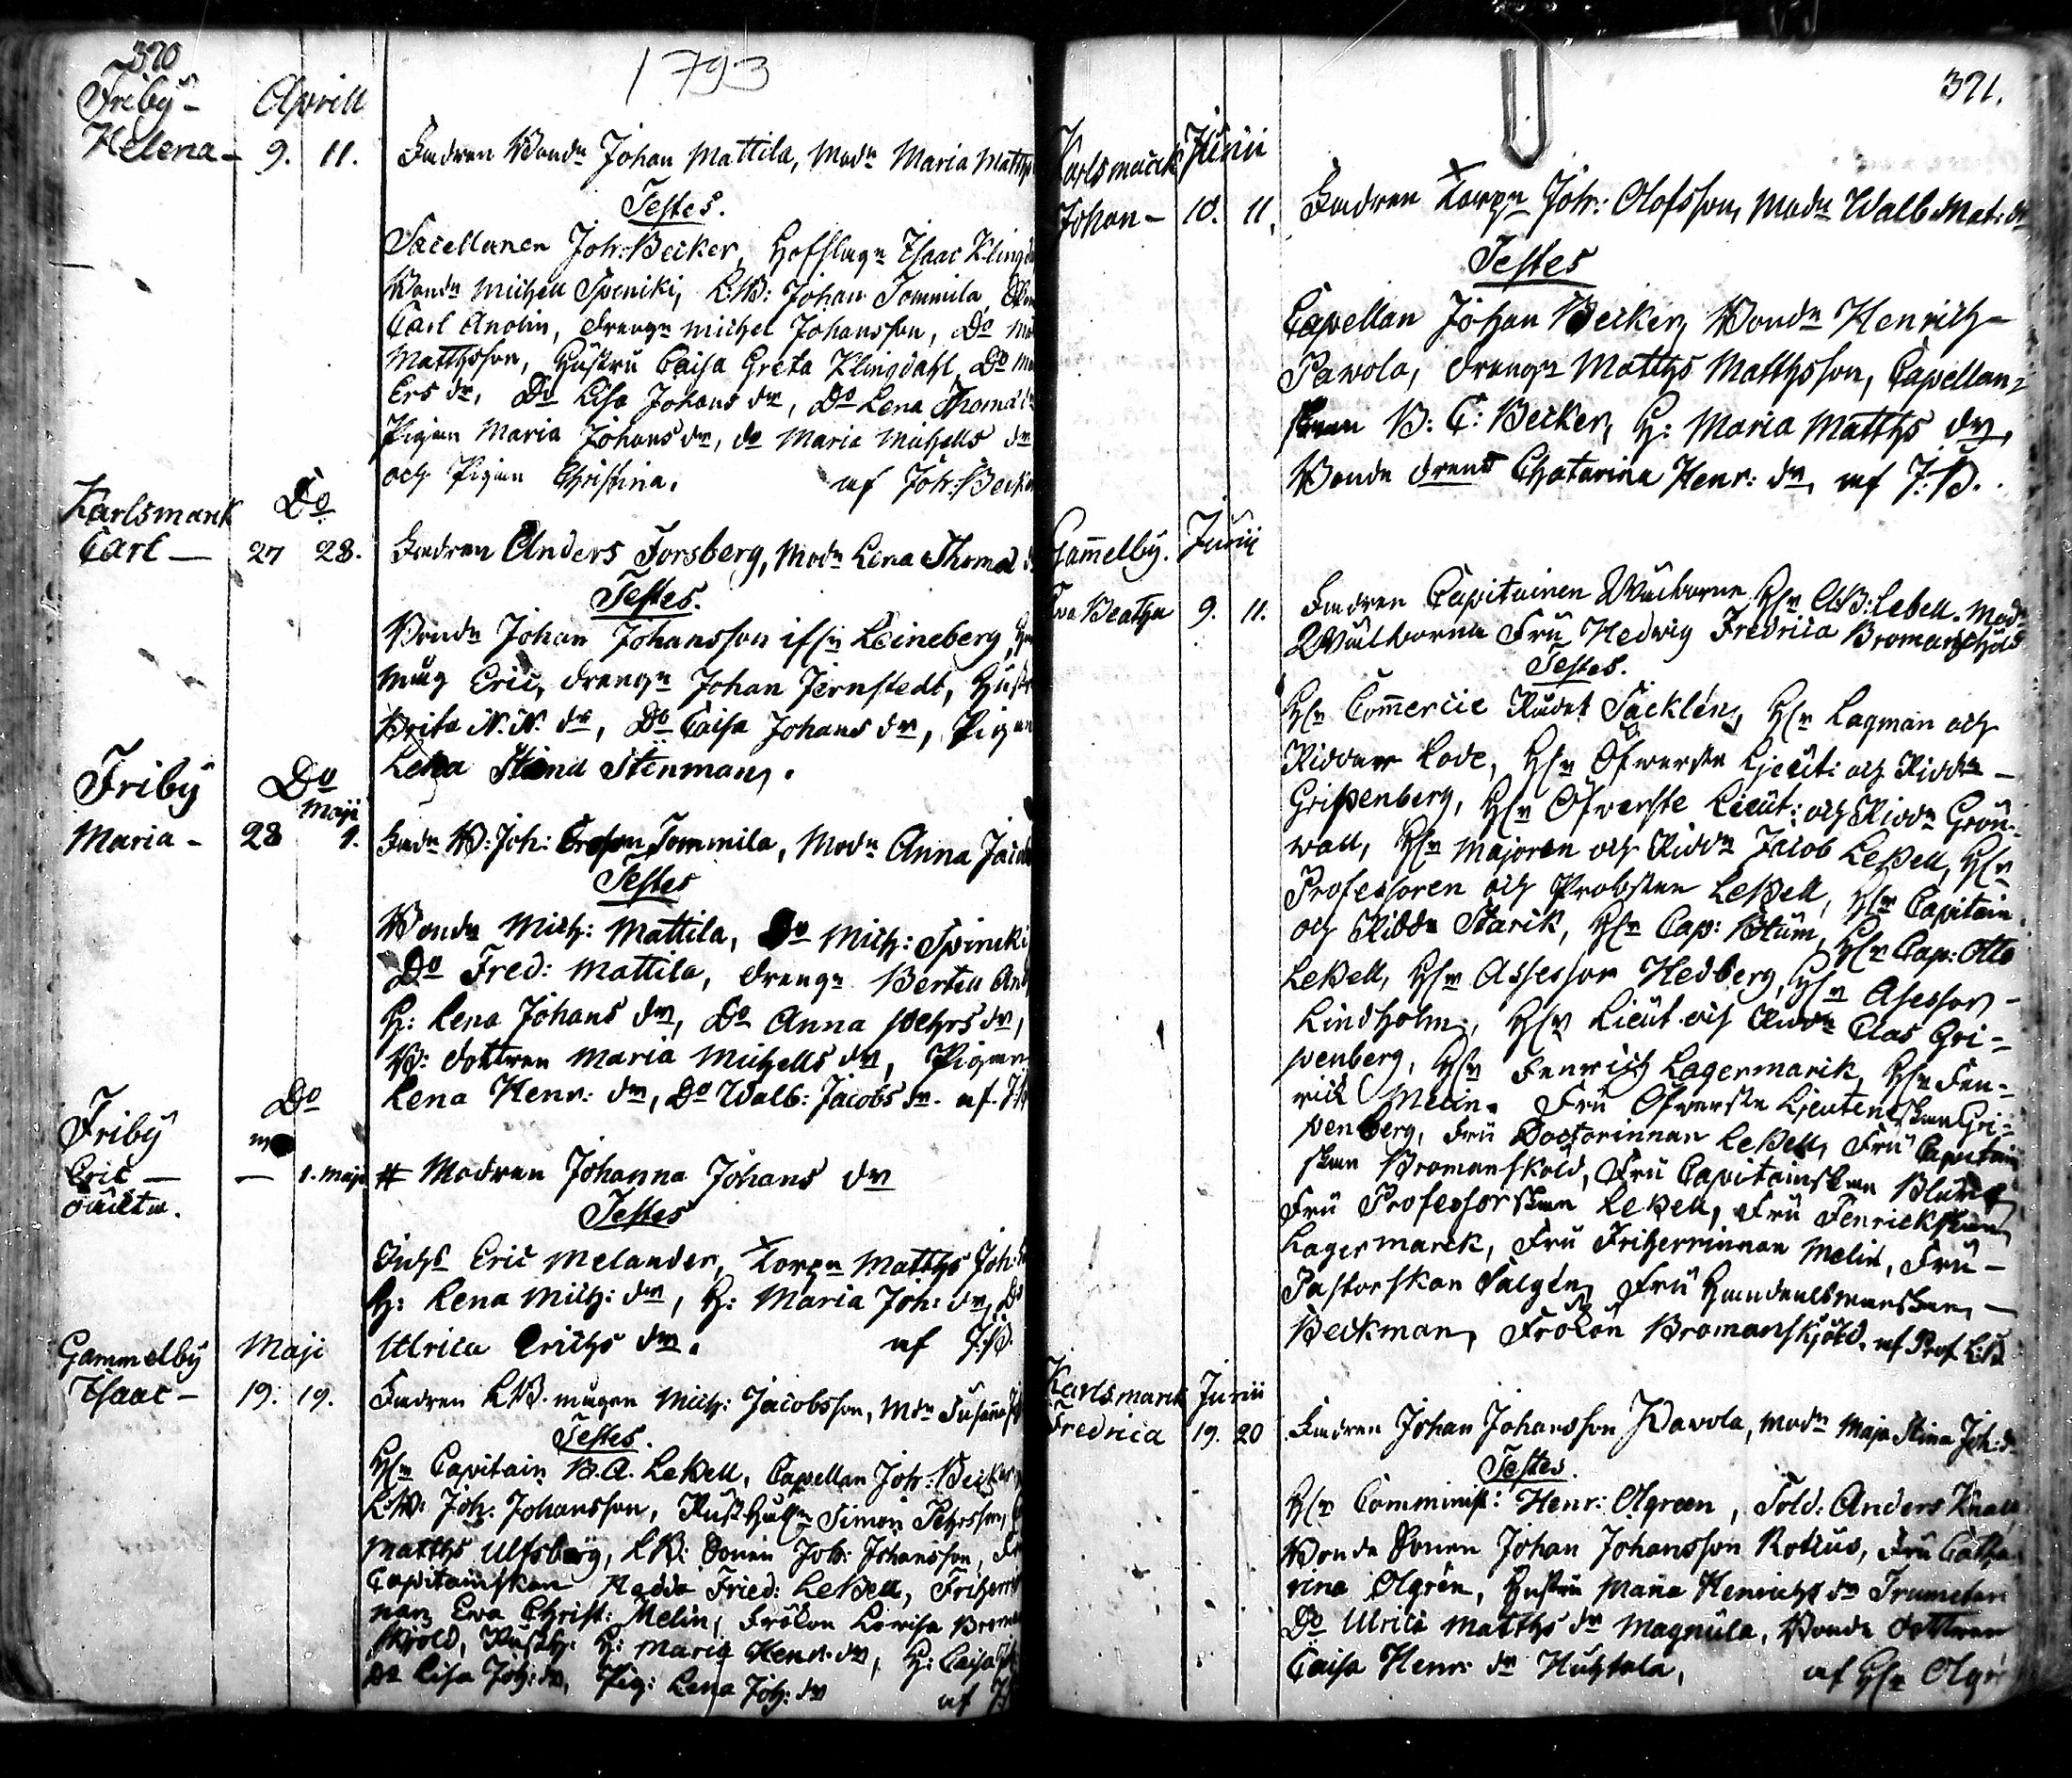 370
1793
Friby - Aprill
Helena - 9. 11. Fadren Bondn Johan Mattila, Modn Maria Matths
Testes.
Sacellanen Joh: Becker, Hofslagn Isaac Klingda
Bondn Michell Spiniki, L:B: Johan Tommila,
Carl Anolin, drengn Michel Johansson, Do
Matthsson, Hustru Caisa Greta Klingdahl, Do
Ers dr, Do Lisa Johans dr, Do Lena Thomæ dr
Pigan Maria Johans dr, do Maria Michells dr
och Pigan Christina. af Joh: Becker
Karlsmark Do
Carl - 27 28. Fadren Anders Forsberg, Modn Lena Thomæ
Testes.
Bondn Johan Johansson Leineberg,
måg Eric, drengn Johan Jernstedt, Hustr
Brita N. N. dr, Do Caisa Johans dr, Pigan
Lena Stina Stenman.
Friby Do Maji
Maria - 28 1. Fadn B: Joh: Ersson Tommila, Modn Anna Jacobs
Testes
Bondn Mich: Mattila, Do Mich: Spiniki
Do Fred: Mattila, drengn Bertill And
H: Lena Johans dr, Do Anna Pehrs dr,
B: dottren Maria Michells dr, Pigan
Lena Henr: dr, Do Walb: Jacobs dr. af J:B
Friby Do
Eric - - 1. Maji # Modren Johanna Johans dr
oäckta.
Testes
Eric Melander, Torpn Matths Joh:
H: Lena Mich: dr, H: Maria Joh: dr, Do
Ulrica Erichs dr. af J:B.
Gammelby Maji
Isaac - 19. 19. Fadren L:B. mågen Mich: Jacobsson, Mdn Susana
Testes.
Hr Capitain B. A. LeBell, Capellan Joh: Becker
L:B: Joh: Johansson, Rusthåln Simon Pehrsson,
Matths Ulfsberg, L:B: Sonen Joh: Johansson,
Capitainskan Hedda Fried: LeBell, Friherrin
nan Ewa Christ: Melin, Fröken Lovisa Broman
skjöld, Rusth: H: Maria Henr: dr, H: Caisa
Do Lisa Joh: dr, Pig: Lena Joh: dr af J:
371.
Karlsmark Junii
Johan - 10. 11. Fadren Torpn Joh: Olofsson, Modn Walb Mats: dr
Testes
Capellan Johan Becker, Bondn Henrich
Pavola, drengn Matths Matthsson, Capellan=
skan B: C: Becker, H: Maria Matths dr,
Bonde Chatarina Henr: dr, af J:B.
Gammelby. Junii
Eva Beatha 9. 11. Fadren Capitainen Wälborne Hr A:B: Lebell. Modn
Wälborna Fru Hedwig Fredrica Bromanskjöld
Testes.
Hr Commercie Rådet Säcklén, Hr Lagman och
Riddare Lode, Hr Öfwerste Ljeut: och Riddn -
Gripenberg, Hr Öfwerste Lieut: och Riddn Grön-
wall, Hr Majoren och Riddn Jacob LeBell, Hr
Professoren och Probsten LeBell, Hr Capitain
och Riddn Starck, Hr Cap: Blum, Hr Cap: Otto
LeBell, Hr Assessor Hedberg, Hr Asessor -
Lindholm, Hr Lieut. och Riddn Clas Gri-
penberg, Hr Fenrich Lagermarck, Hr Fen-
rick Melin. Fru Öfwerste Ljeutenskan Gri-
penberg, Fru Doctorinnan LeBell, Fru Capitain
skan Bromanskold, Fru Capitainskan Blum
Fru Professorskan LeBell, Fru Fenrickskan
Lagermarck, Fru Friherrinnan Melin, Fru -
Pastorskan Salgén, Fru
Beckman, Fröken Bromanskjöld. af Prof L:B
Karlsmark Junii
Fredrica 19. 20 Fadren Johan Johansson Pavola, Modn Maja Stina Joh: dr
Testes.
Hr Comminist: Henr: Olgreen, Sold: Anders
Bonde Sonen Johan Johansson Rotius, Fru Catha
rina Olgrén, Hustru Maria Henrichs dr
Do Ulrica Matths dr Magnula, Bonde dottren
Caisa Henr: dr Huhtala, af Hr Olgr